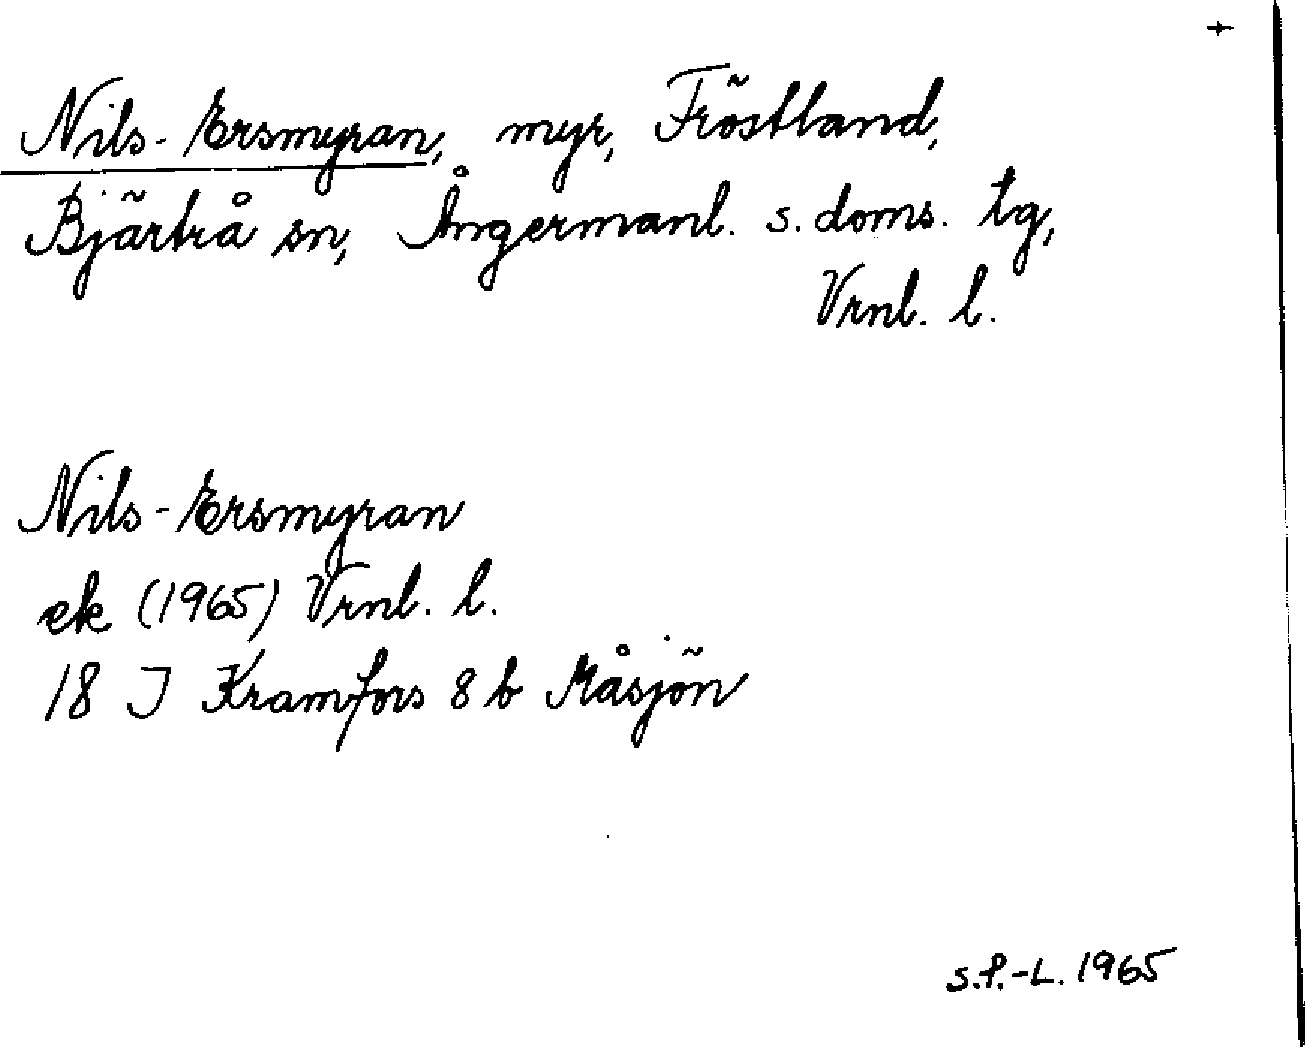 +
Nils-Ersmyran, myr, Fröstland,
Bjärtrå sn, Ångermanl. s. doms. tg,
Vrnl. l.
Nils-Ersmyran
ek (1965) Vrnl. l.
18 J Kramfors 8 b Måsjön
S.P.-L. 1965